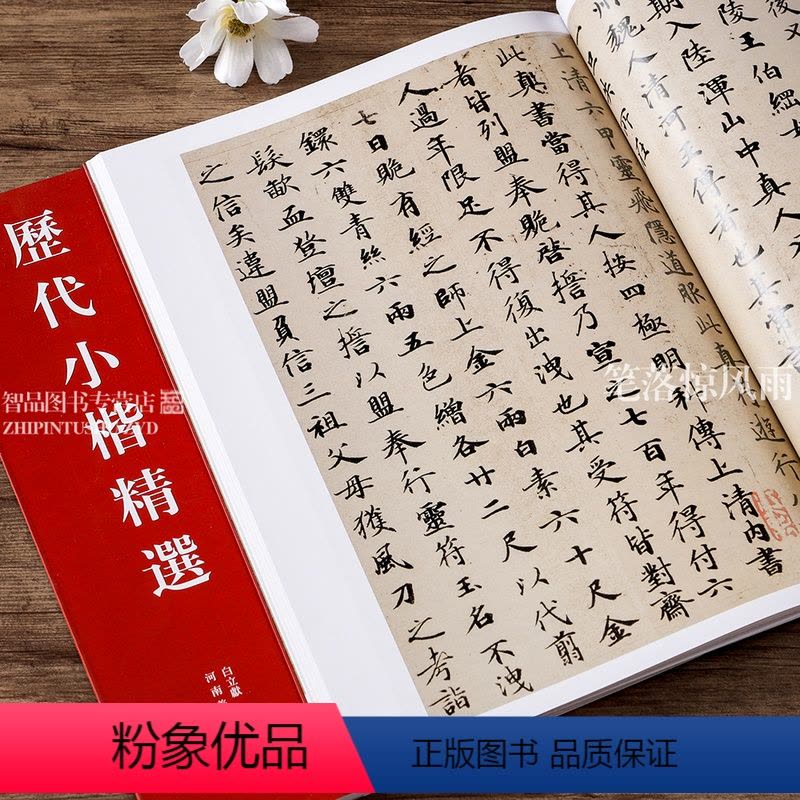 後又
陵王伯綱女
期入陸渾山中真人
州魏人清河王傳者也其常
上清六甲靈飛隱道服此真
遊行
此真書當得其人按四極明科傳上清內書
者皆列盟奉貺啓誓乃宣之七百年得付六
人過年限足不得復出洩也其受符皆對齋
七日貺有經之師上金六兩白素六十尺金
鐶六雙青絲六兩五色繒各廿二尺以代翦
髮歃血登壇之誓以盟奉行靈符玉名不洩
之信矣違盟負信三祖父母獲風刀之考詣
歷代小楷精選
白立獻
河南
智品图书专营店
笔落惊风雨
粉象优品
正版图书 品质保证